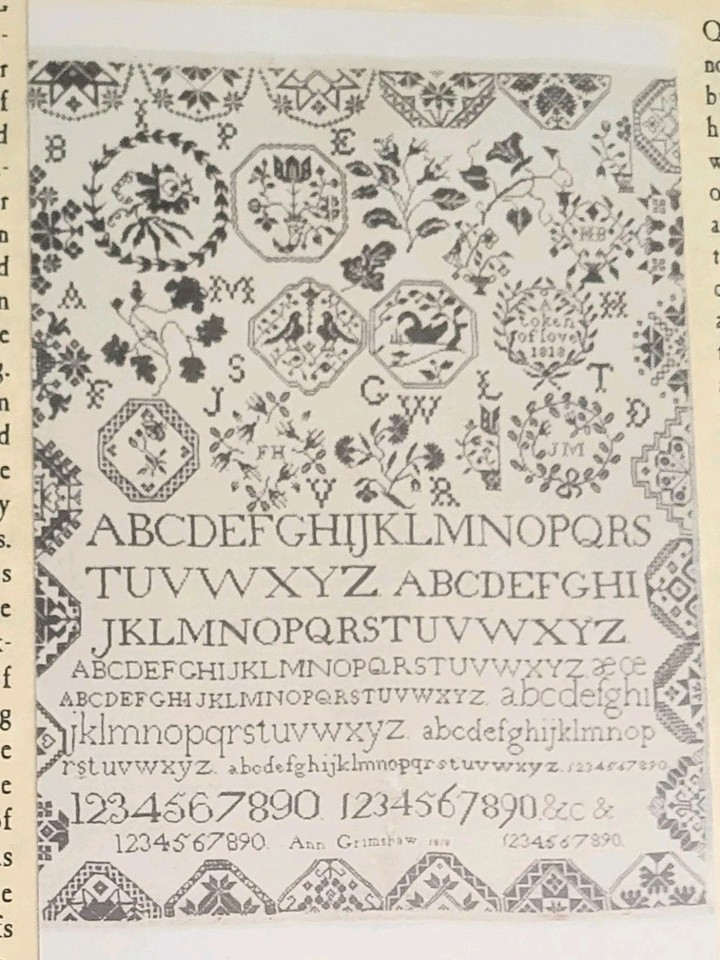 I
B P E
HB
A M H
A
token
of love
1818
S T
F J G W L D
FH JM
V R
ABCDEFGHIJKLMNOPQRS
TUVWXYZ ABCDEFGHI
JKLMNOPQRSTUVWXYZ.
ABCDEFGHIJKLMNOPQRSTUVWXYZ æ œ
ABCDEFGHIJKLMNOPQRSTUVWXYZ. abcdefghi
jklmnopqrstuvwxyz. abcdefghijklmnop
rstuvwxyz. abcdefghijklmnopqrstuvwxyz. 1234567890
1234567890. 1234567890.&c &
1234567890. Ann Grimshaw 1818 1234567890.